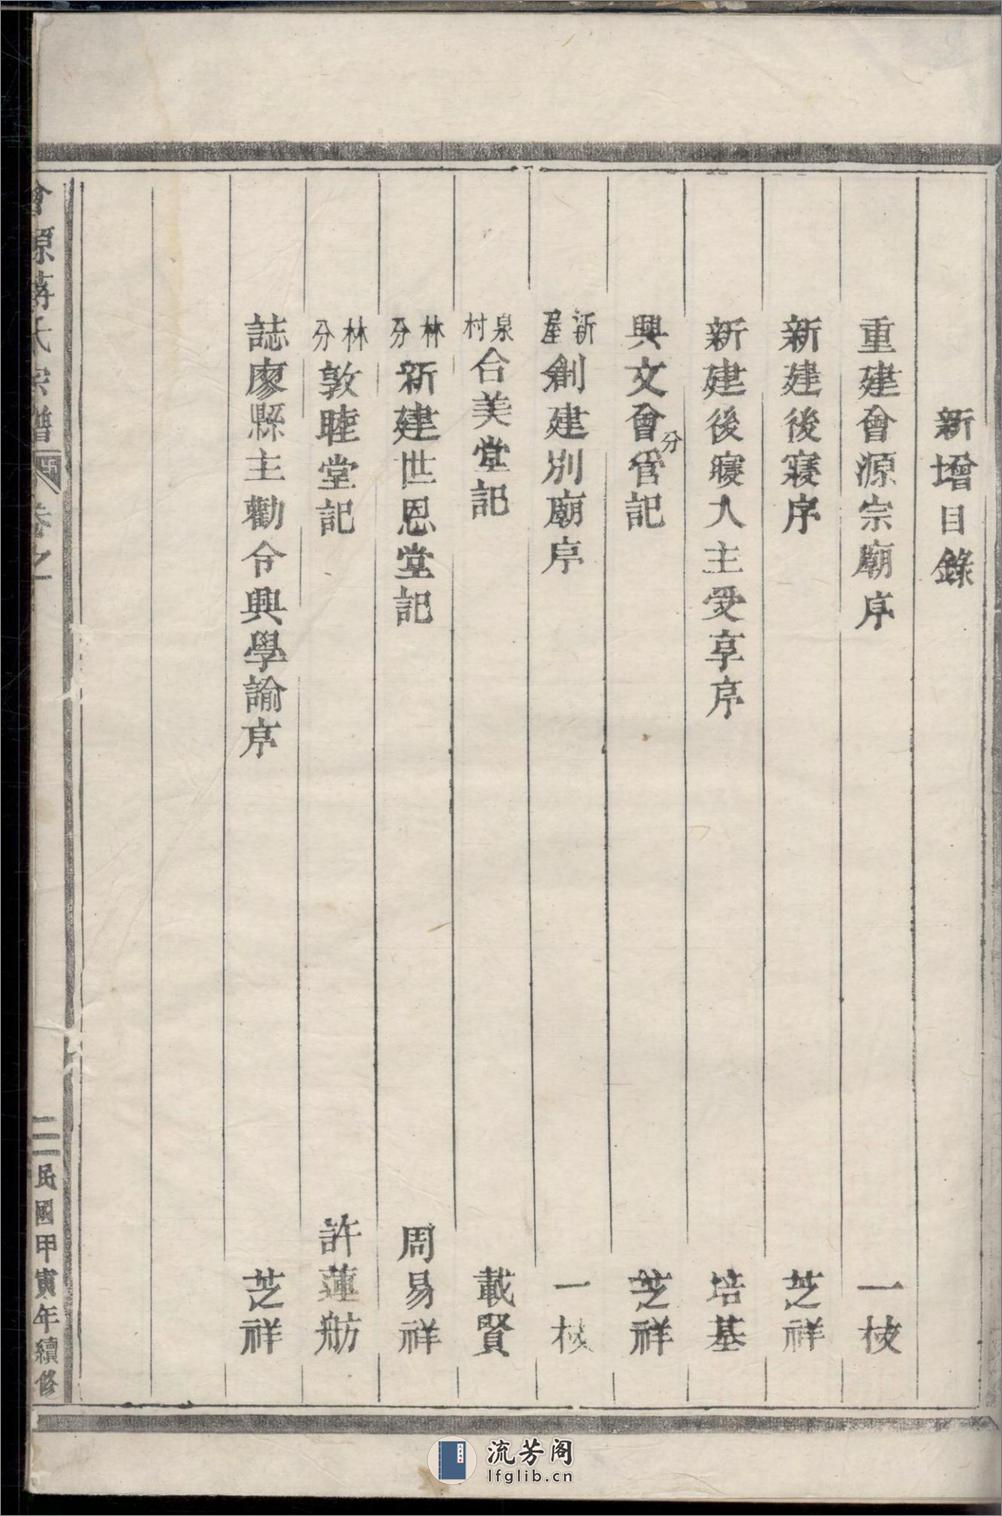 新增目錄
重建會源宗廟序 一枝
新建後寢序 芝祥
新建後寢入主受享序 培基
興文會分管記 芝祥
新屋創建別廟序 一枝
泉村合美堂記 載賢
林分新建世恩堂記 周易祥
林分敦睦堂記 許蓮舫
誌廖縣主勸令興學諭序 芝祥
會源蔣氏宗譜 卷之 二 民國甲寅年續修
流芳阁
lfglib.cn